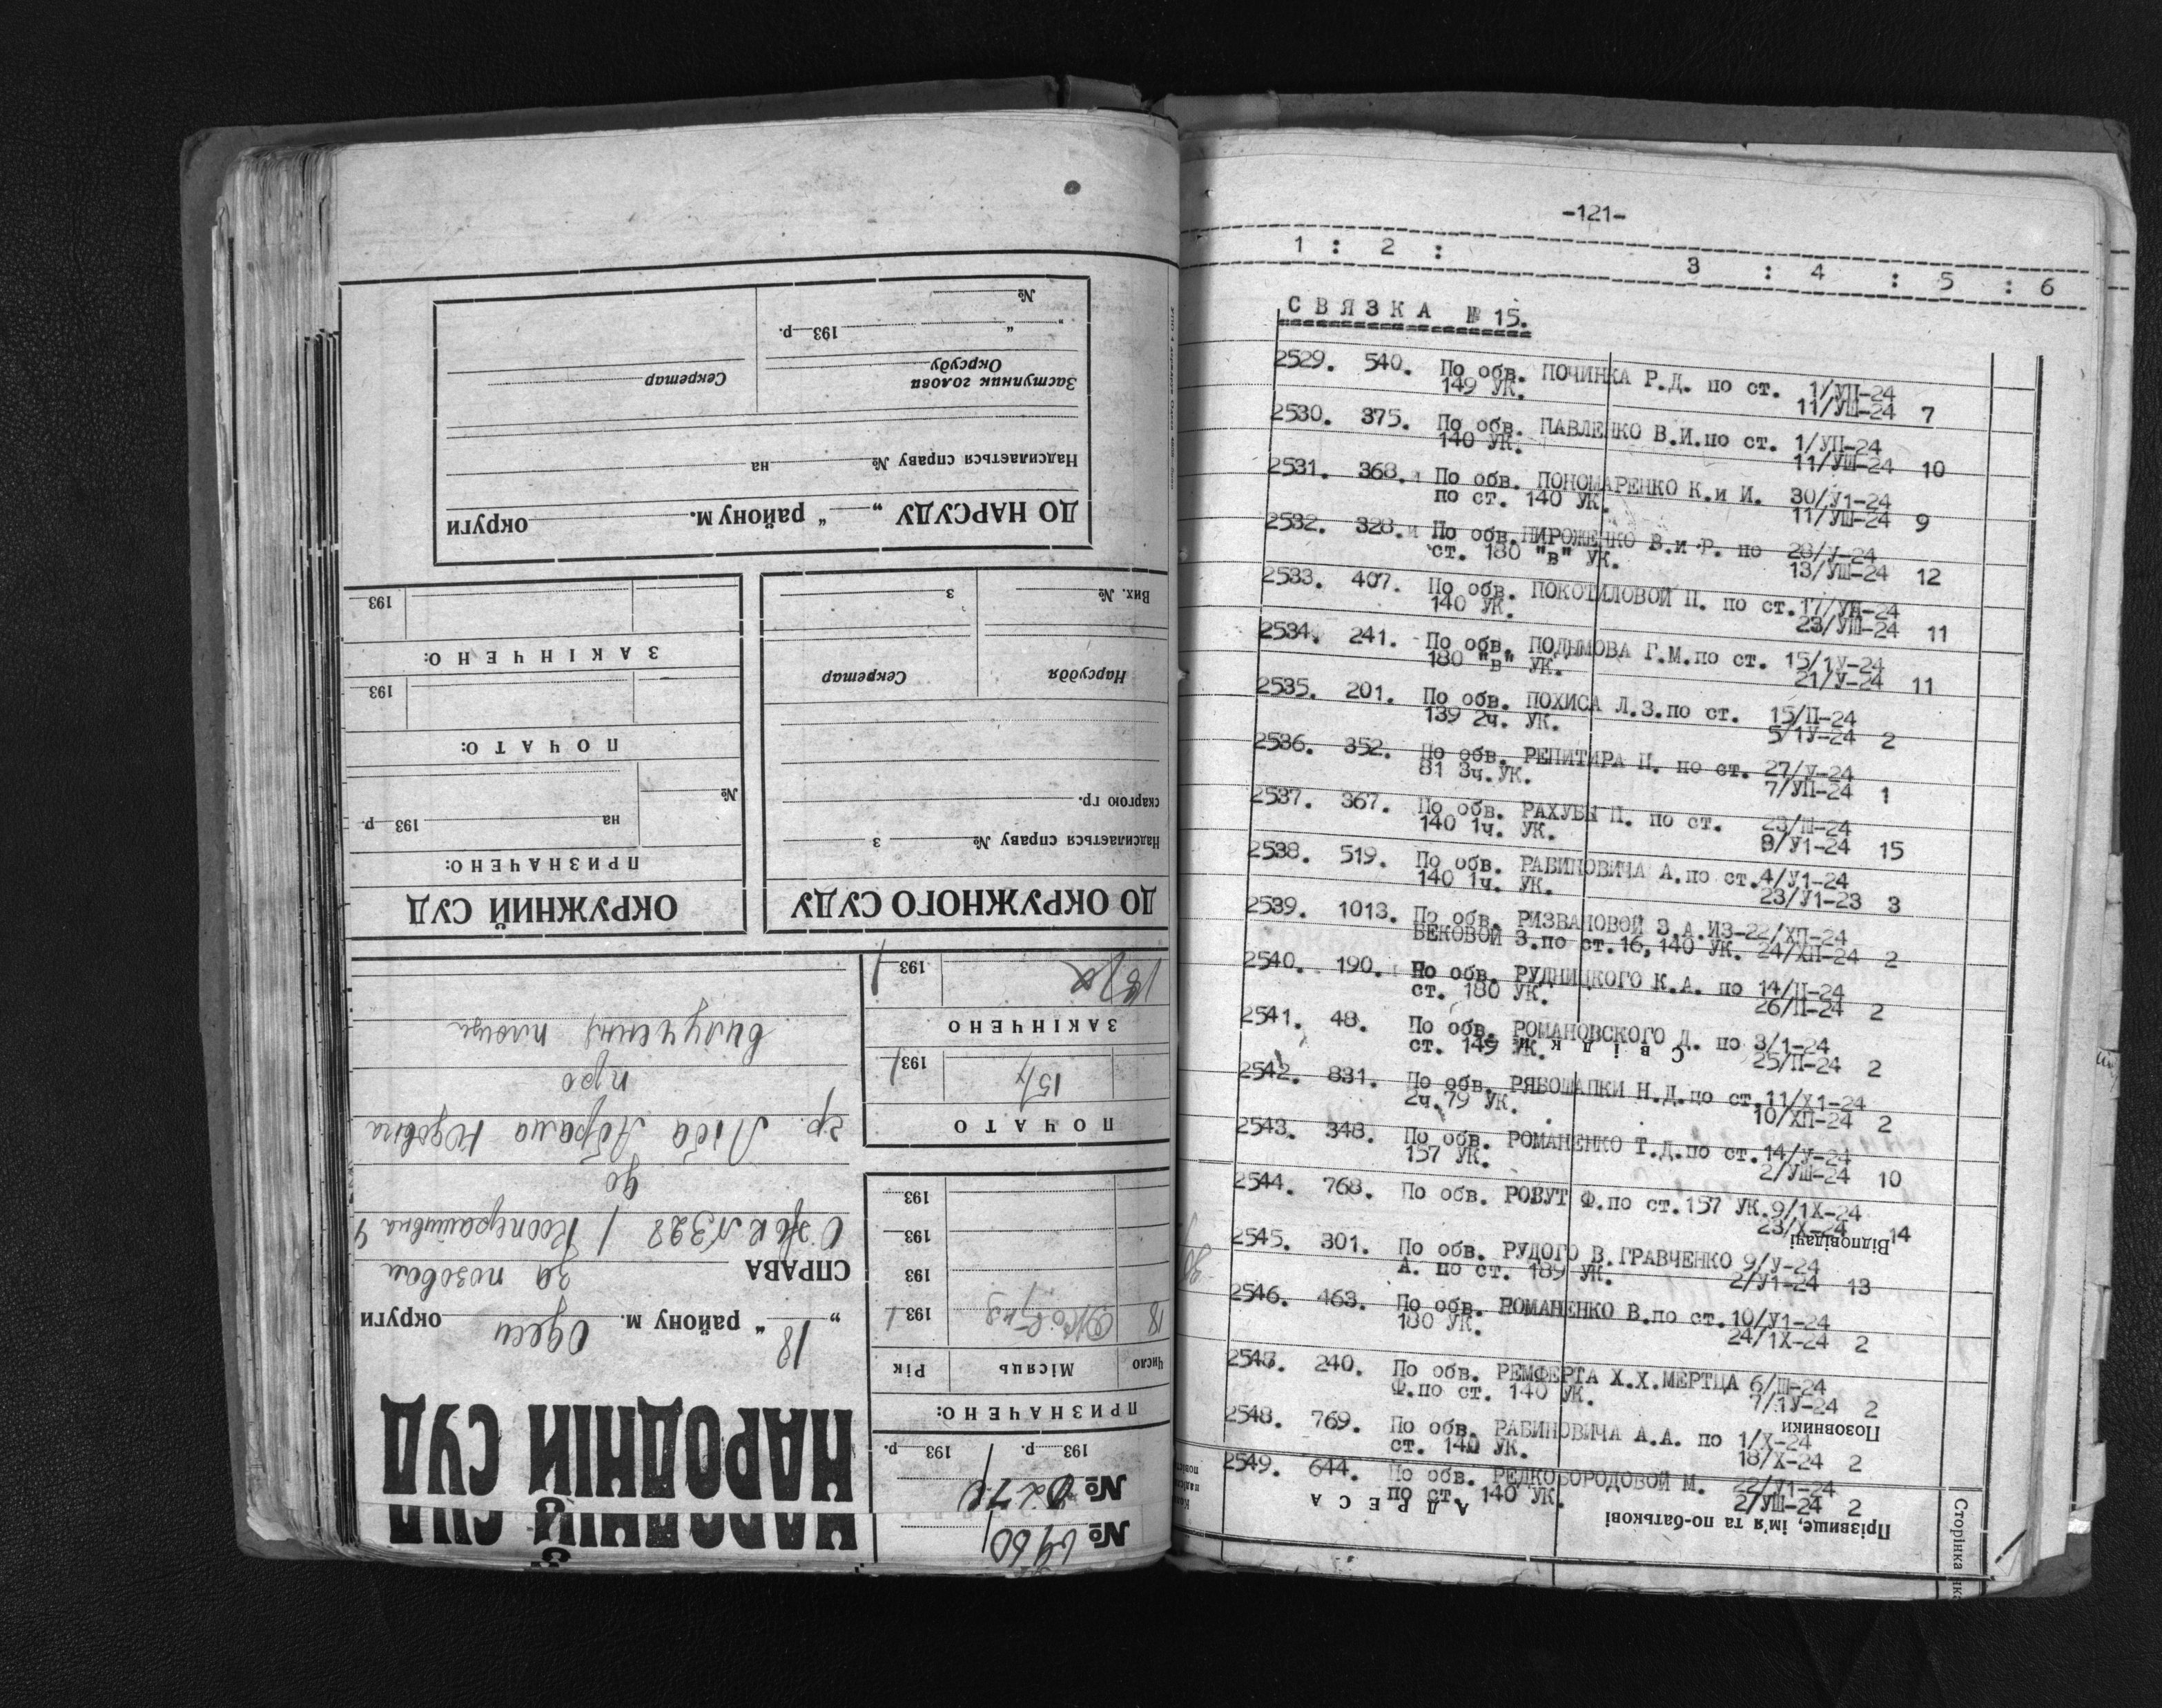 №
„ “ 193 р.
Заступник голови Окрсуду
Секретар
Надсилається справу № на
ДО НАРСУДУ „ “ району м. округи
Вих. № з
Нарсуддя Секретар
скаргою гр.
Надсилається справу № з
ДО ОКРУЖНОГО СУДУ
193
ЗАКІНЧЕНО:
193
ПОЧАТО:
№ на 193 р.
ПРИЗНАЧЕНО:
ОКРУЖНИЙ СУД
НАРОДНІЙ СУД
НАРОДНІЙ СУД
18 “ району м. Одеси округи
СПРАВА за позовом
328 / Кооперативна 4
до
гр. Ліба Абрама
про
вилучення площи
№
№
193 р. 193 р.
ПРИЗНАЧЕНО:
Число Місяць Рік
18 193
193
193
193
ПОЧАТО
15/ 193
ЗАКІНЧЕНО
193
-121-
1 : 2 : 3 : 4 : 5 : 6
СВЯЗКА № 15.
2529. 540. По обв. ПОЧИНКА Р.Д. по ст. 1/УП-24
149 УК. 11/УШ-24 7
2530. 375. По обв. ПАВЛЕНКО В.И.по ст. 1/УП-24
140 УК. 11/УШ-24 10
2531. 368. По обв. ПОНОМАРЕНКО К.и И. 30/У1-24
по ст. 140 УК. 11/УШ-24 9
2532. 328. По обв.ПИРОЖЕНКО В.и Р. по 20/У-24
ст. 180 "в" УК. 13/УШ-24 12
2533. 407. По обв. ПОКОТИЛОВОЙ П. по ст.17/УП-24
140 УК. 23/УШ-24 11
2534. 241. По обв. ПОДЫМОВА Г.М.по ст. 15/1У-24
180 "в" УК. 21/У-24 11
2535. 201. По обв. ПОХИСА Л.З.по ст. 15/П-24
139 2ч. УК. 5/1У-24 2
2536. 352. По обв. РЕПИТИРА П. по ст. 27/У-24
81 3ч.УК. 7/УП-24 1
2537. 367. По обв. РАХУБЫ П. по ст. 23/Ш-24
140 1ч. УК. 9/У1-24 15
2538. 519. По обв. РАБИНОВИЧА А.по ст.4/У1-24
140 1ч. УК. 23/У1-23 3
2539. 1013. По обв. РИЗВАНОВОЙ З.А.ИЗ-22/ХП-24
БЕКОВОЙ З.по ст.16,140 УК. 24/ХП-24 2
2540. 190. По обв. РУДНИЦКОГО К.А. по 14/П-24
ст. 180 УК. 26/П-24 2
2541. 48. По обв. РОМАНОВСКОГО Д. по 3/1-24
ст. 149 УК. 25/П-24 2
Свідки
2542. 831. По обв. РЯБОШАПКИ Н.Д.по ст.11/Х1-24
2ч.79 УК. 10/ХП-24 2
2543. 348. По обв. РОМАНЕНКО Т.Д.по ст.14/У-24
157 УК. 2/УШ-24 10
2544. 768. По обв. РОВУТ Ф.по ст.157 УК.9/1Х-24
23/Х-24 14
Відповідачі
2545. 301. По обв. РУДОГО В.ГРАВЧЕНКО 9/У-24
А. по ст. 189 УК. 2/У1-24 13
2546. 463. По обв. РОМАНЕНКО В.по ст.10/У1-24
180 УК. 24/1Х-24 2
2547. 240. По обв. РЕМФЕРТА Х.Х.МЕРТЦА 6/Ш-24
Ф.по ст. 140 УК. 7/1У-24 2
2548. 769. По обв. РАБИНОВИЧА А.А. по 1/Х-24
ст. 140 УК. 18/Х-24 2
Позовники
2549. 644. По обв. РЕДКОБОРОДОВОЙ М. 22/У1-24
по ст. 140 УК. 2/УШ-24 2
АДРЕСА
Прізвище, ім'я та по-батькові
Сторінка